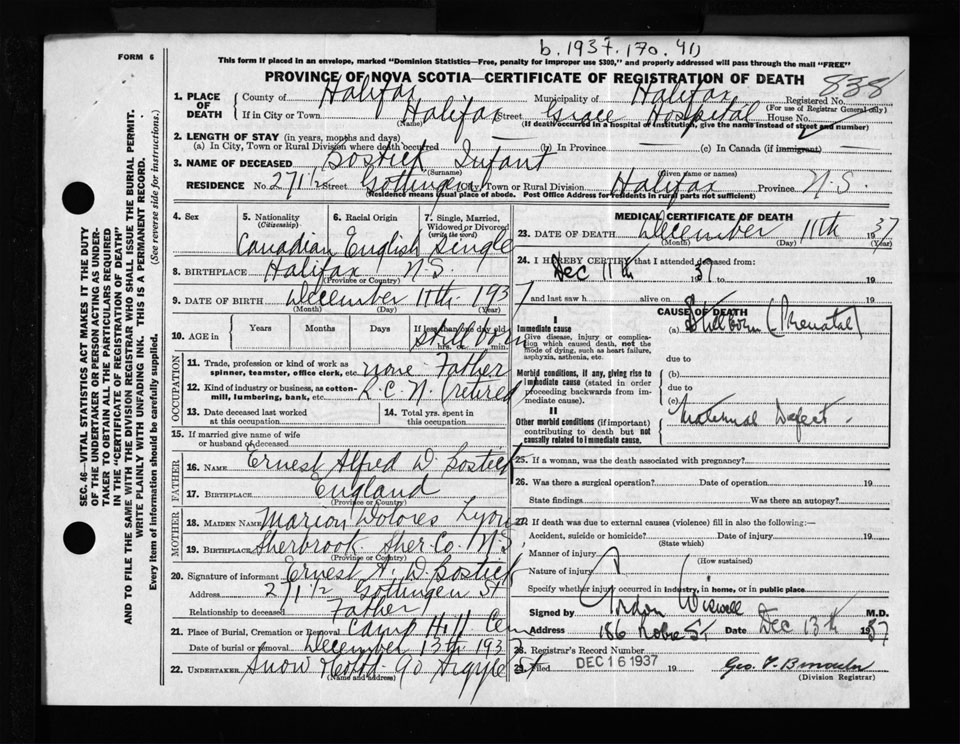 b. 1937. 170. 411
FORM 6
This form if placed in an envelope, marked "Dominion Statistics—Free, penalty for improper use $300", and properly addressed will pass through the mail "FREE"
PROVINCE OF NOVA SCOTIA—CERTIFICATE OF REGISTRATION OF DEATH
838
1. PLACE OF DEATH
County of Halifax Municipality of Halifax Registered No.
(For use of Registrar General only)
If in City or Town Halifax Street Grace Hospital House No.
(Name) (If death occurred in a hospital or institution, give the name instead of street and number)
2. LENGTH OF STAY (in years, months and days)
(a) In City, Town or Rural Division where death occurred (b) In Province (c) In Canada (if immigrant)
3. NAME OF DECEASED Bostick Infant
(Surname) (Given name or names)
RESIDENCE No. 271½ Street Gottingen City, Town or Rural Division Halifax Province N.S.
(Residence means usual place of abode. Post Office Address for residents in rural parts not sufficient)
4. Sex
5. Nationality (Citizenship) Canadian
6. Racial Origin English
7. Single, Married, Widowed or Divorced (write the word) Single
8. BIRTHPLACE Halifax N.S.
(Province or Country)
9. DATE OF BIRTH December 11th 1937
(Month) (Day) (Year)
10. AGE in Years Months Days If less than one day old hrs. or min. Still born
OCCUPATION
11. Trade, profession or kind of work as spinner, teamster, office clerk, etc. none - Father
12. Kind of industry or business, as cotton-mill, lumbering, bank, etc. R.C.N. (retired
13. Date deceased last worked at this occupation
14. Total yrs. spent in this occupation
15. If married give name of wife or husband of deceased
FATHER
16. NAME Ernest Alfred W. Bostick
17. BIRTHPLACE England
(Province or Country)
MOTHER
18. MAIDEN NAME Marion Dolores Lyons
19. BIRTHPLACE Sherbrook Sher. Co. N.S.
(Province or Country)
20. Signature of informant Ernest A. W. Bostick
Address 271½ Gottingen St
Relationship to deceased Father
21. Place of Burial, Cremation or Removal Camp Hill Cem
Date of burial or removal December 13th 1937
22. UNDERTAKER Snow 90 Argyle St
(Name and address)
MEDICAL CERTIFICATE OF DEATH
23. DATE OF DEATH December 11th 1937
(Month) (Day) (Year)
24. I HEREBY CERTIFY that I attended deceased from:
Dec 11th 1937 to 19
and last saw h alive on 19
CAUSE OF DEATH
I
Immediate cause
Give disease, injury or complication which caused death, not the mode of dying, such as heart failure, asphyxia, asthenia, etc.
(a) Stillborn (Prenatal)
due to
Morbid conditions, if any, giving rise to immediate cause (stated in order proceeding backwards from immediate cause).
(b)
due to
(c)
II
Other morbid conditions (if important) contributing to death but not causally related to immediate cause.
Maternal Defect.
25. If a woman, was the death associated with pregnancy?
26. Was there a surgical operation? Date of operation 19
State findings Was there an autopsy?
27. If death was due to external causes (violence) fill in also the following:—
Accident, suicide or homicide? Date of injury 19
(State which)
Manner of injury
(How sustained)
Nature of injury
Specify whether injury occurred in industry, in home, or in public place
Signed by Gordon Wiswell M.D.
Address 186 Robie St Date Dec 13th 1937
28. Registrar's Record Number
29. Filed DEC 16 1937 19
(Division Registrar)
SEC. 46—VITAL STATISTICS ACT MAKES IT THE DUTY
OF THE UNDERTAKER OR PERSON ACTING AS UNDER-
TAKER TO OBTAIN ALL THE PARTICULARS REQUIRED
IN THE "CERTIFICATE OF REGISTRATION OF DEATH"
AND TO FILE THE SAME WITH THE DIVISION REGISTRAR WHO SHALL ISSUE THE BURIAL PERMIT.
WRITE PLAINLY WITH UNFADING INK. THIS IS A PERMANENT RECORD.
Every item of information should be carefully supplied. (See reverse side for instructions.)